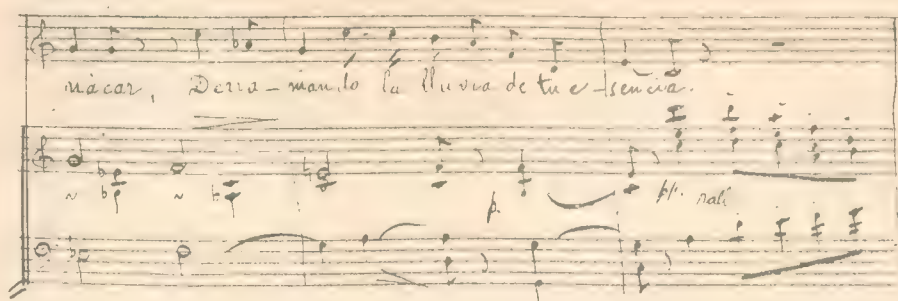 nácar, Derra-mando la lluvia de tu e-sencia.
p.
pp. rall